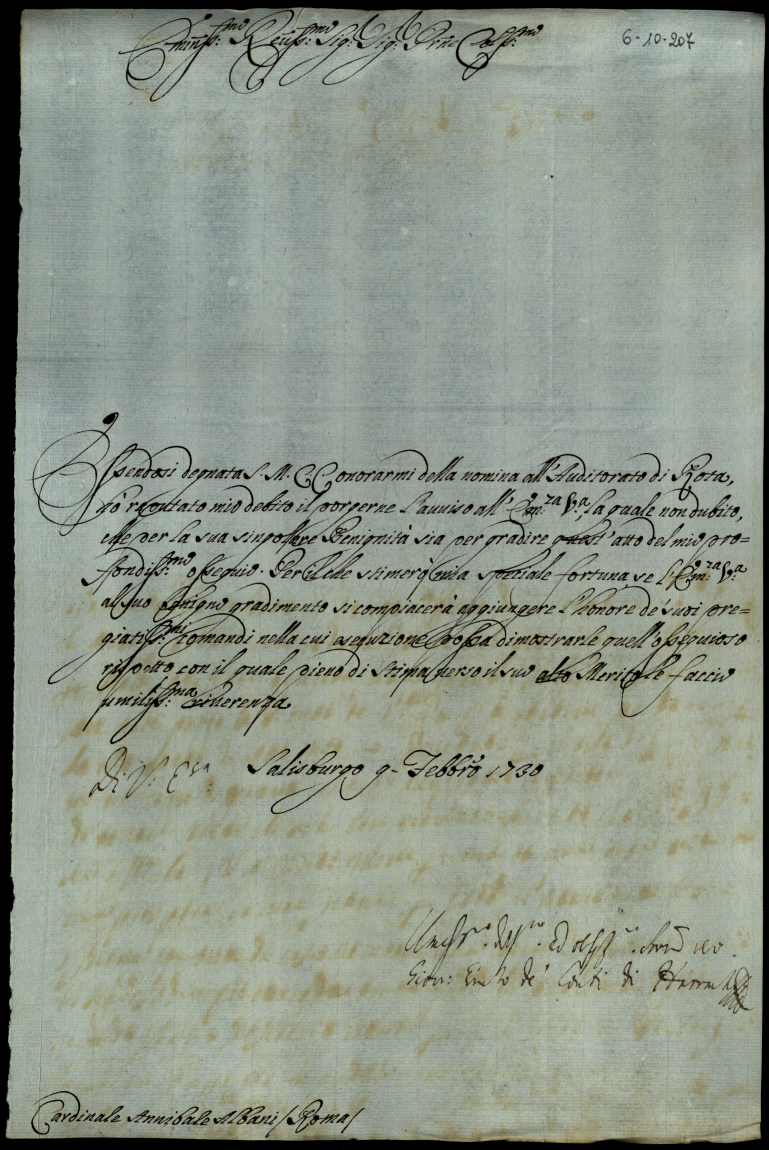 Eminss:mo Reuss:mo Sig: Sig: Prne Colss:mo
6-10-207
Essendosi degnata S. M. C. C. onorarmi della nomina all'Auditorato di Rota,
hò reputato mio debito il porgerne l'auuiso all' Em:za V:a, la quale non dubito,
che per la sua singolare Benignità sia per gradire quest' atto del mio pro=
fondiss:mo ossequio. Per il che stimerò mia speziale fortuna, se l'Em:za V:a
al suo benigno gradimento si compiacerà aggiungere l'honore de suoi pre=
giatiss:mi comandi nella cui esecuzione possa dimostrarle quell'ossequioso
rispetto con il quale pieno di stima verso il suo alto Merito le faccio
umiliss:ma riherenza
Di V: E:za Salisburgo 9- Febbro 1730
Umiss:mo Ed
Giov: de' Conti di Harrach
Cardinale Annibale Albani / Roma /